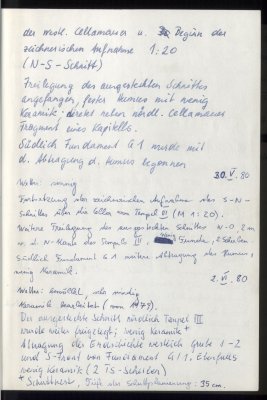 der westl. Cellamauer u. Beginn der
zeichnerischen Aufnahme 1:20
(N-S-Schnitt)
Freilegung des ausgesteckten Schnittes
angefangen, fester Humus mit wenig
Keramik. direkt neben nördl. Cellamauer
Fragment eines Kapitells.
Südlich Fundament G 1 wurde mit
d. Abtragung d. Humus begonnen
30. V. 80
Wetter: sonnig
Fortsetzung der zeichnerischen Aufnahme des S-N-
Schnittes über die Cella von Tempel III (M 1:20).
Weitere Freilegung des ausgesteckten Schnittes N-O, 2m
n. d. N-Kante des Tempels III, Funde, 2 Scherben
Südlich Fundament G 1 weitere Abtragung des Humus,
wenig Keramik.
2. VI. 80
Wetter: bewölkt, sonnig
Keramik bearbeitet (von 1979).
Der ausgesteckte Schnitt nördlich Tempel III
wurde weiter freigelegt, wenig Keramik +
Abtragung der Erdschicht westlich Grube 1-2
und S-Front von Fundament G 1. Ebenfalls
wenig Keramik (2 TS-Scherben)
+ Schnittrest, Tiefe der Schuttplanierung: 35 cm.